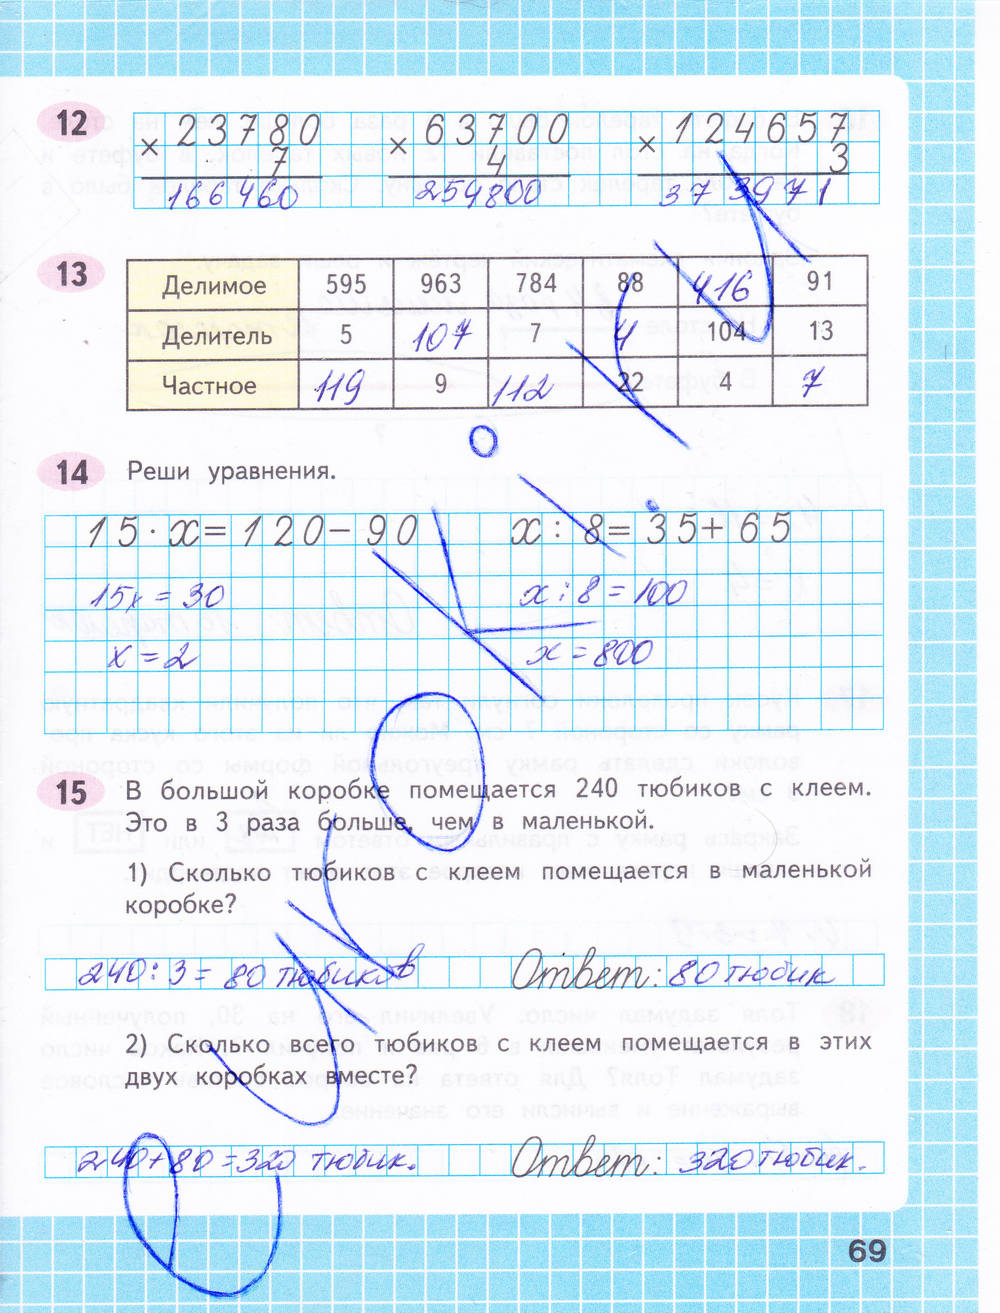 12
23780 63700 124657
× 7 × 4 × 3
166460 254800 373971
13
Делимое 595 963 784 88 416 91
Делитель 5 107 7 4 104 13
Частное 119 9 112 22 4 7
14 Реши уравнения.
15 · x = 120 − 90 x : 8 = 35 + 65
15x = 30 x : 8 = 100
x = 2 x = 800
15 В большой коробке помещается 240 тюбиков с клеем.
Это в 3 раза больше, чем в маленькой.
1) Сколько тюбиков с клеем помещается в маленькой
коробке?
240 : 3 = 80 тюбиков Ответ: 80 тюбик
2) Сколько всего тюбиков с клеем помещается в этих
двух коробках вместе?
240 + 80 = 320 тюбик. Ответ: 320 тюбик.
69